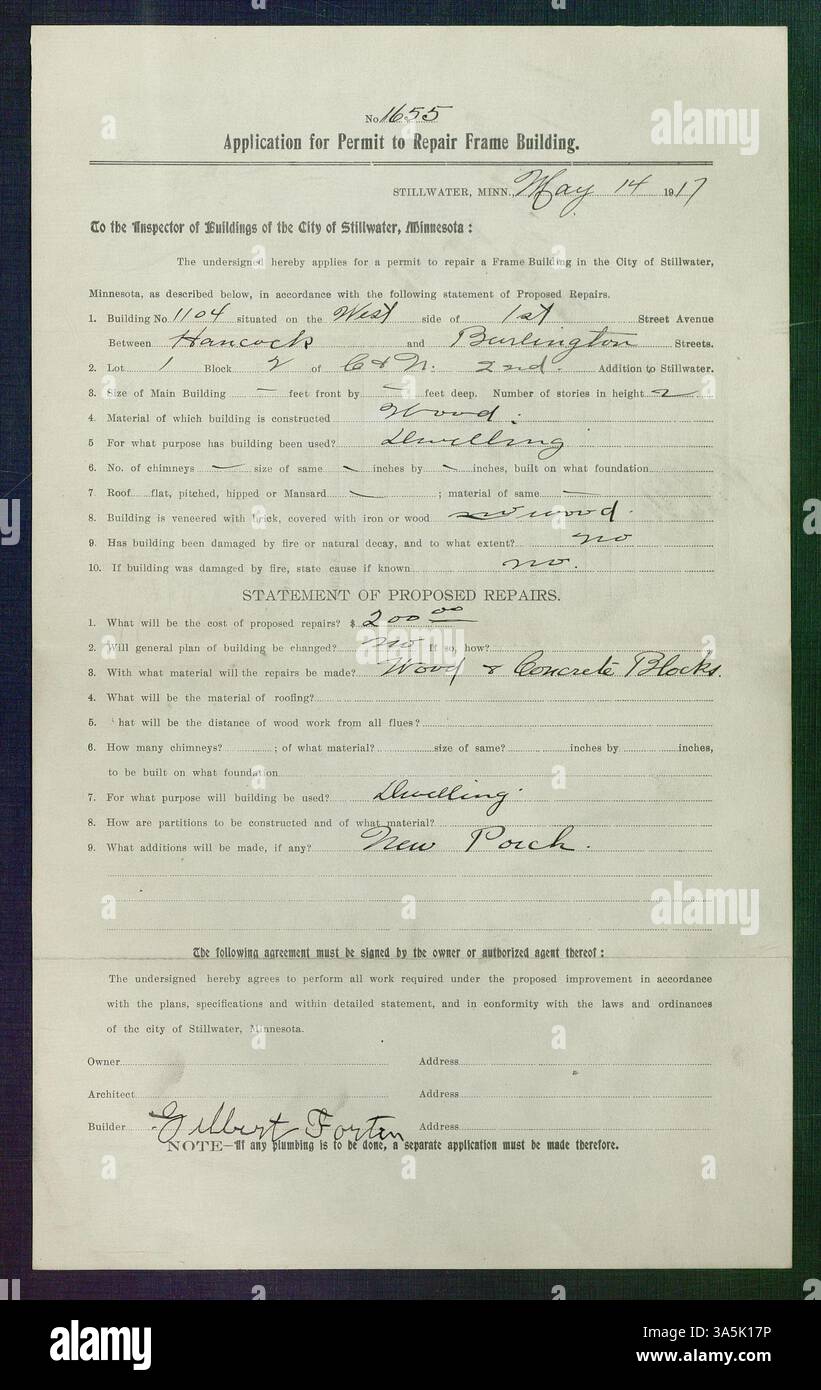 No. 1655
Application for Permit to Repair Frame Building.
STILLWATER, MINN., May 14 1917
To the Inspector of Buildings of the City of Stillwater, Minnesota :
The undersigned hereby applies for a permit to repair a Frame Building in the City of Stillwater,
Minnesota, as described below, in accordance with the following statement of Proposed Repairs.
1. Building No 1104 situated on the West side of 1st Street Avenue
Between Hancock and Burlington Streets.
2. Lot 1 Block 2 of C & N. 2nd. Addition to Stillwater.
3. Size of Main Building — feet front by — feet deep. Number of stories in height 2
4. Material of which building is constructed Wood.
5 For what purpose has building been used? Dwelling
6. No. of chimneys — size of same — inches by — inches, built on what foundation
7 Roof flat, pitched, hipped or Mansard — ; material of same —
8. Building is veneered with brick, covered with iron or wood wood.
9. Has building been damaged by fire or natural decay, and to what extent? no
10. If building was damaged by fire, state cause if known no.
STATEMENT OF PROPOSED REPAIRS.
1. What will be the cost of proposed repairs? $ 200 00
2. Will general plan of building be changed? no If so, how?
3. With what material will the repairs be made? Wood & Concrete Blocks.
4. What will be the material of roofing?
5. hat will be the distance of wood work from all flues?
6. How many chimneys? ; of what material? size of same? inches by inches,
to be built on what foundation
7. For what purpose will building be used? Dwelling.
8. How are partitions to be constructed and of what material?
9. What additions will be made, if any? New Porch.
The following agreement must be signed by the owner or authorized agent thereof :
The undersigned hereby agrees to perform all work required under the proposed improvement in accordance
with the plans, specifications and within detailed statement, and in conformity with the laws and ordinances
of the city of Stillwater, Minnesota.
Owner Address
Architect Address
Builder Gilbert Forten Address
NOTE—If any plumbing is to be done, a separate application must be made therefore.
alamy
Image ID: 3A5K17P
www.alamy.com